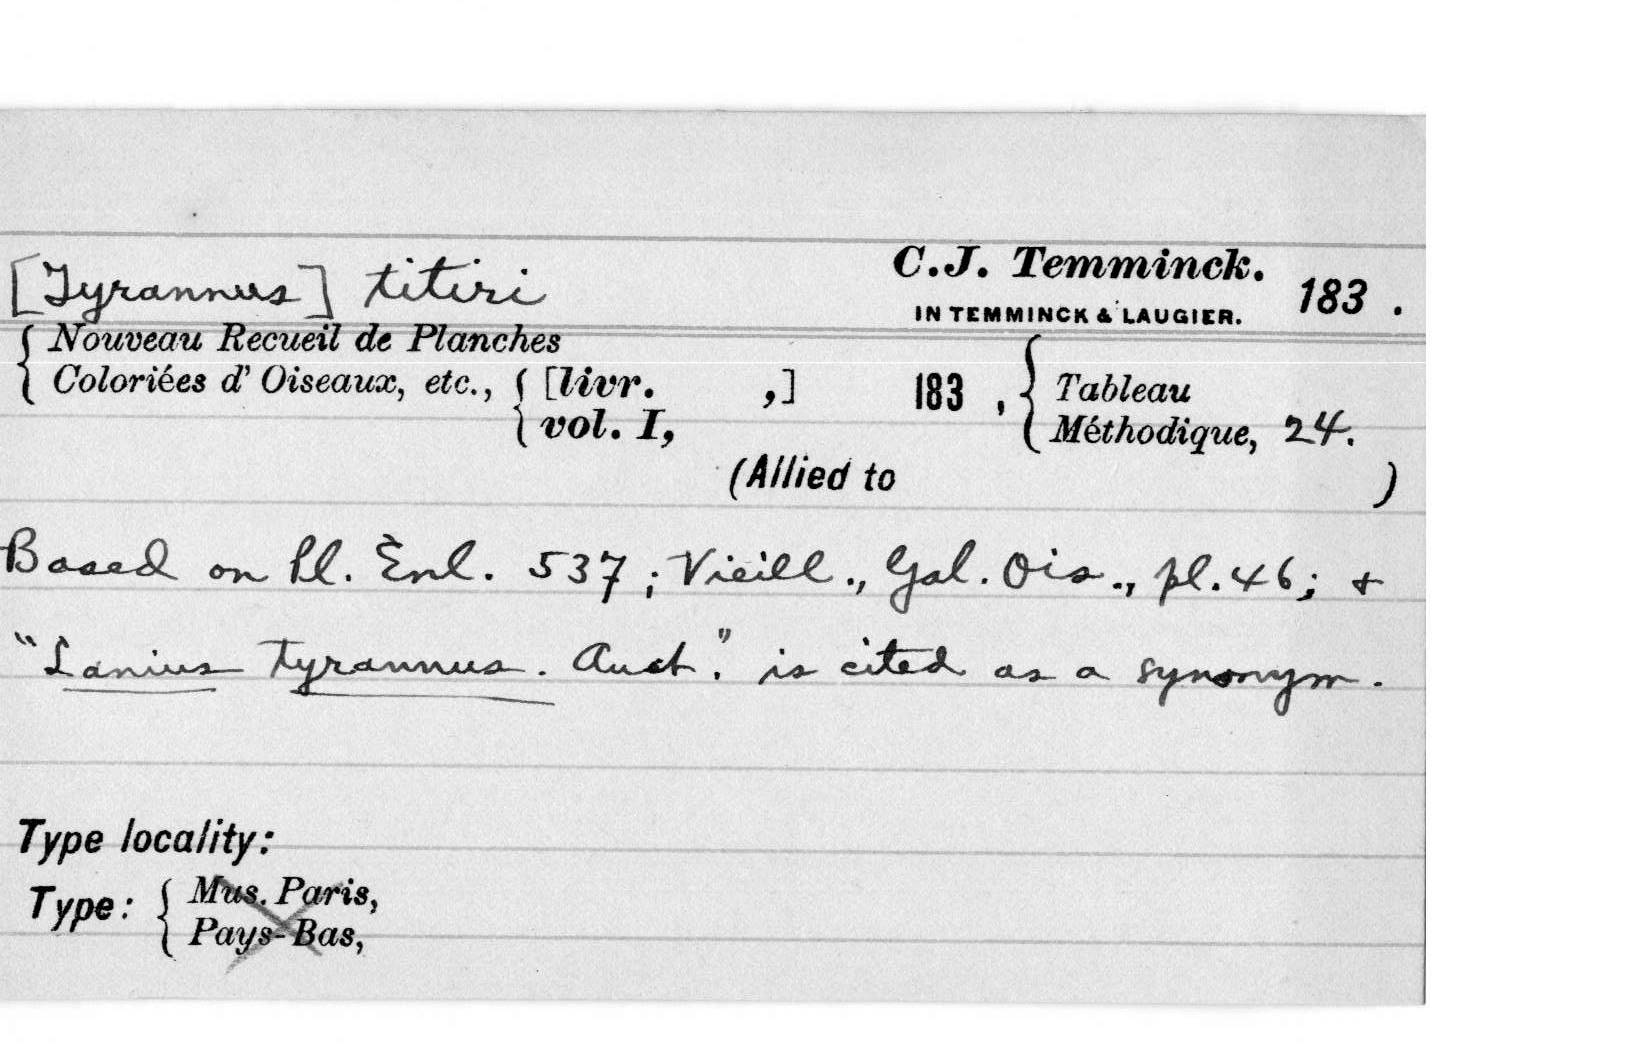 [Tyrannus] titiri C.J. Temminck. 183 .
IN TEMMINCK & LAUGIER.
{ Nouveau Recueil de Planches
Coloriées d' Oiseaux, etc., { [livr. ,] 183 , { Tableau
vol. I, Méthodique, 24.
(Allied to )
Based on Pl. Enl. 537 ; Vieill., Gal. Ois., pl. 46; &
"Lanius tyrannus. Auct." is cited as a synonym.
Type locality:
Type: { Mus. Paris,
Pays-Bas,